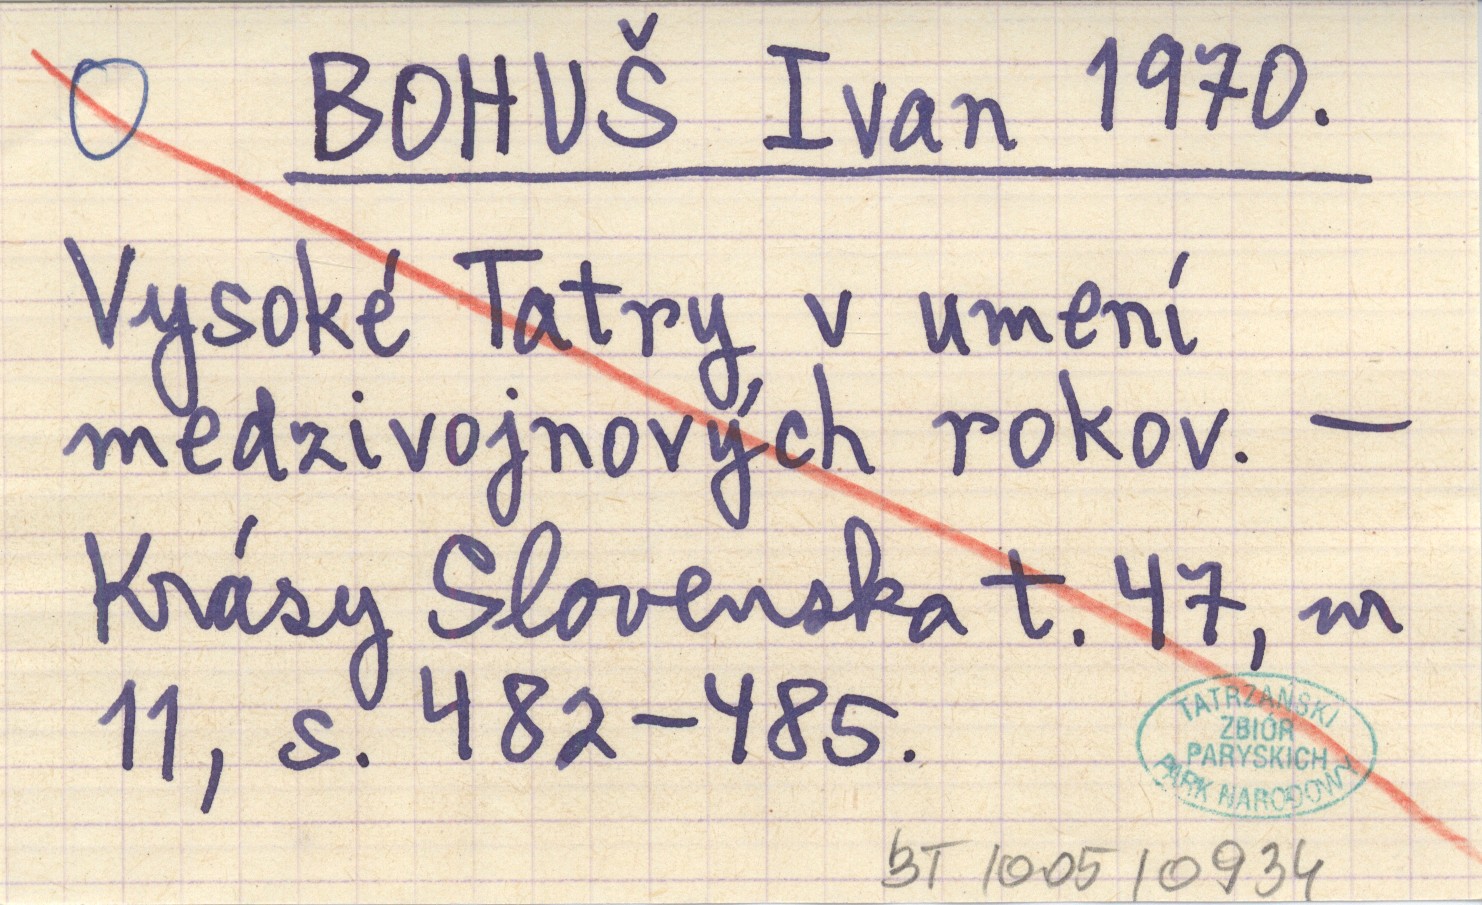 O BOHUŠ Ivan 1970.
Vysoké Tatry v umení
medzivojnových rokov. —
Krásy Slovenska t. 47, nr
11, s. 482-485.
TATRZAŃSKI
ZBIÓR
PARYSKICH
PARK NARODOWY
BT 1005 / 0934